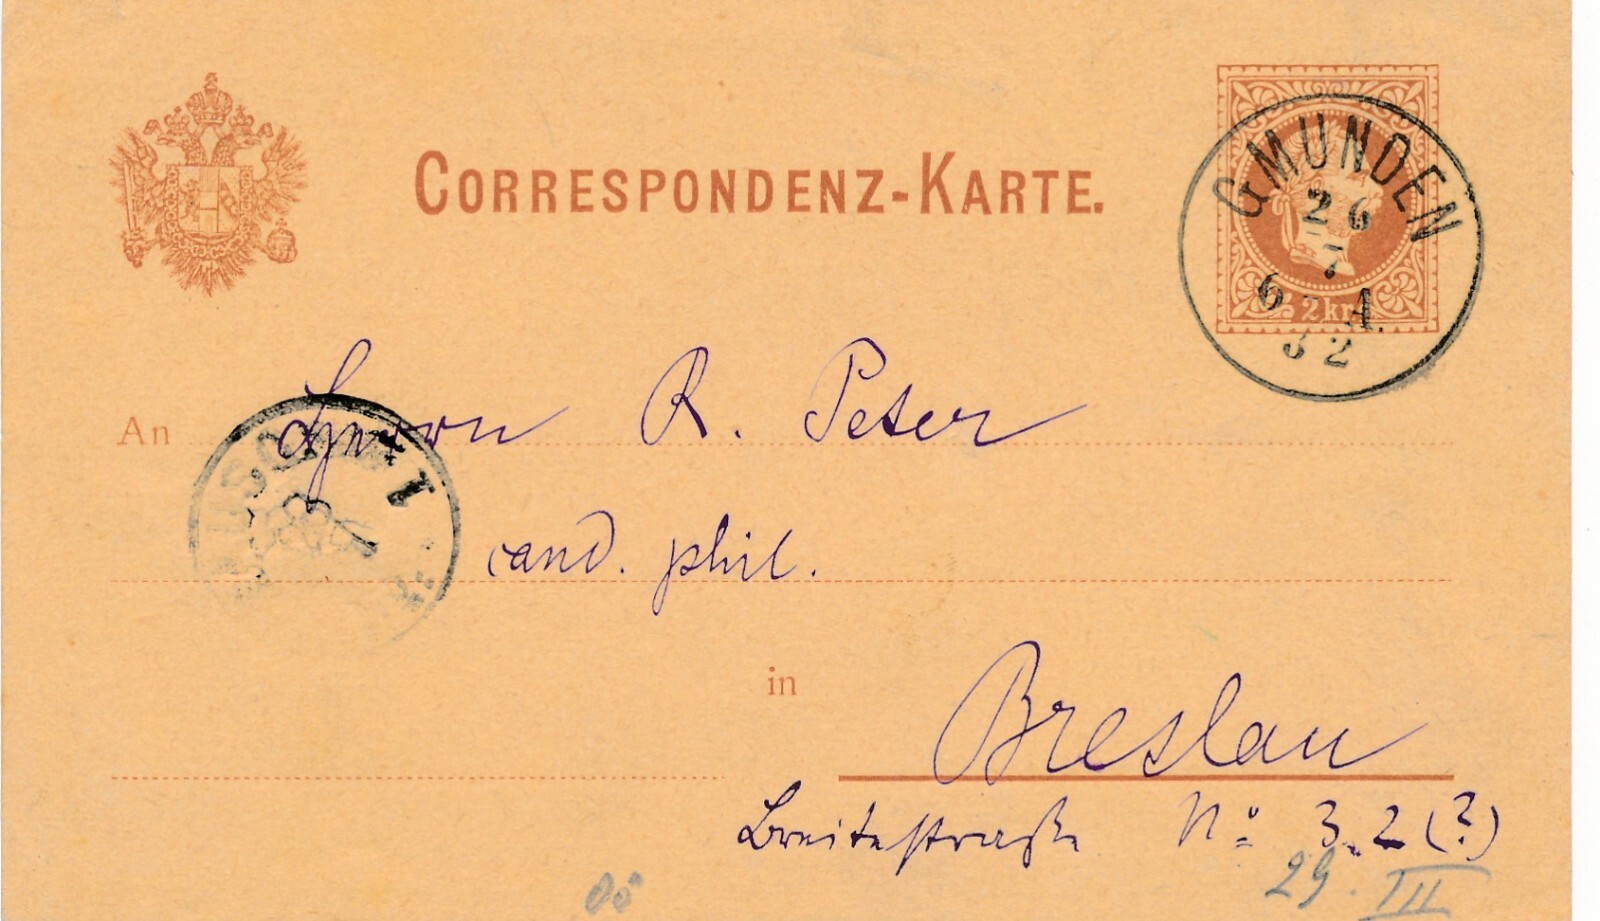 CORRESPONDENZ-KARTE.
GMUNDEN
26
7
6 A.
82
2 kr.
An Herrn R. Peter
cand. phil.
in Breslau
Breitestraße No 32 (?)
29. III